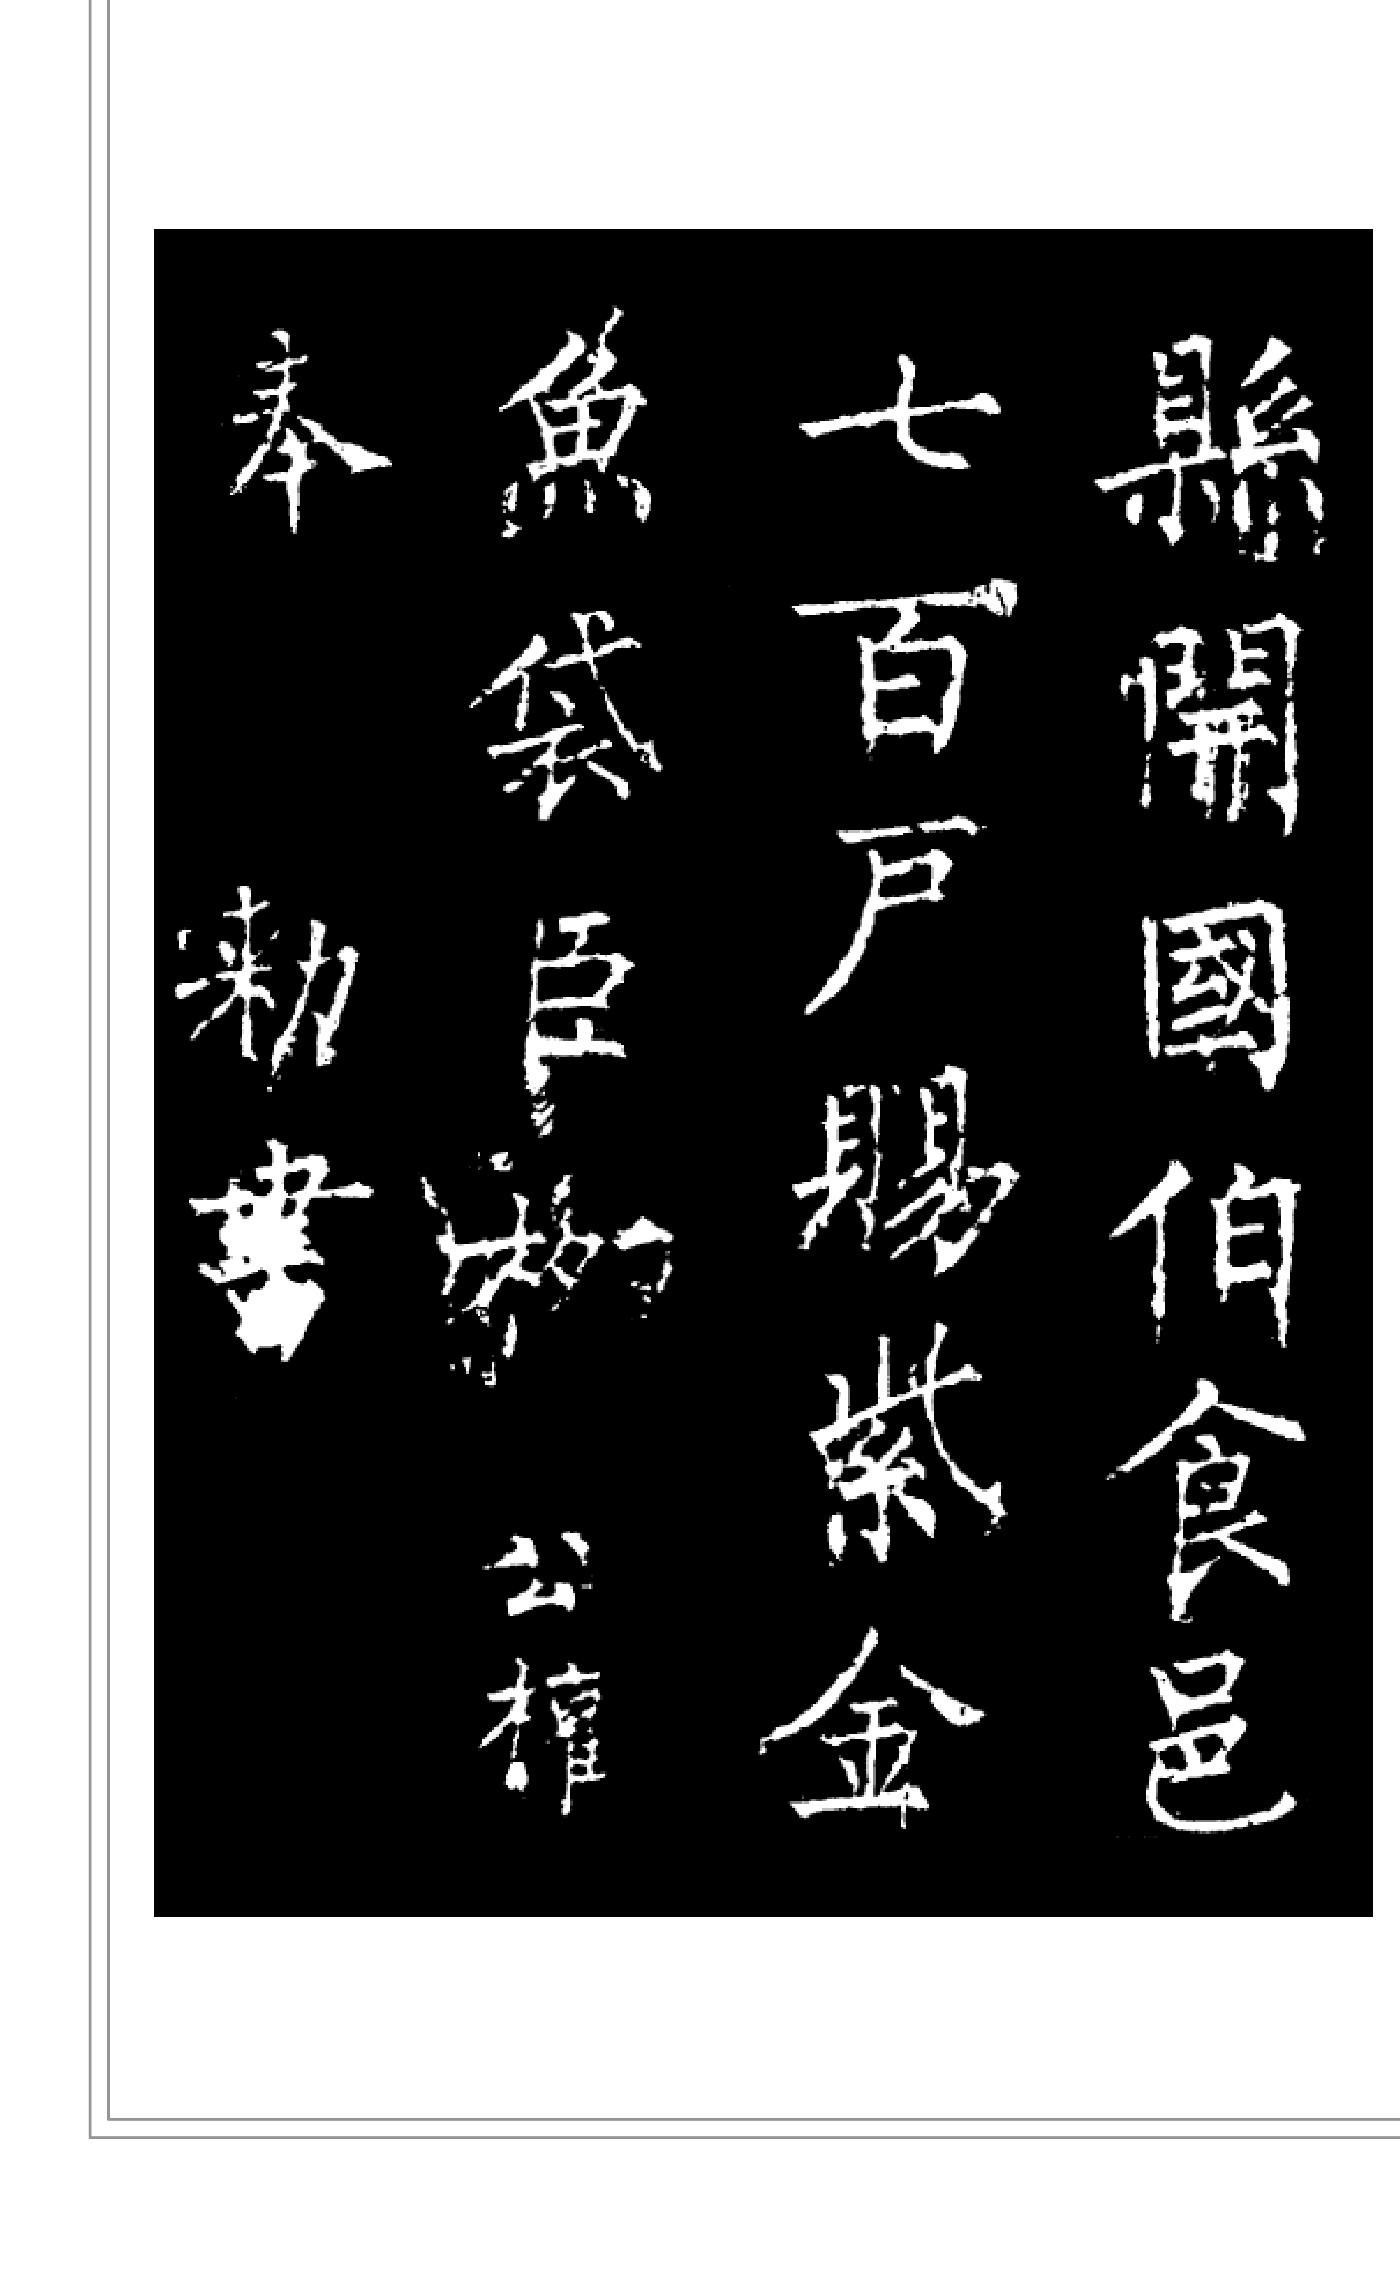 縣開國伯食邑
七百戶賜紫金
魚袋臣柳公權
奉 勑書